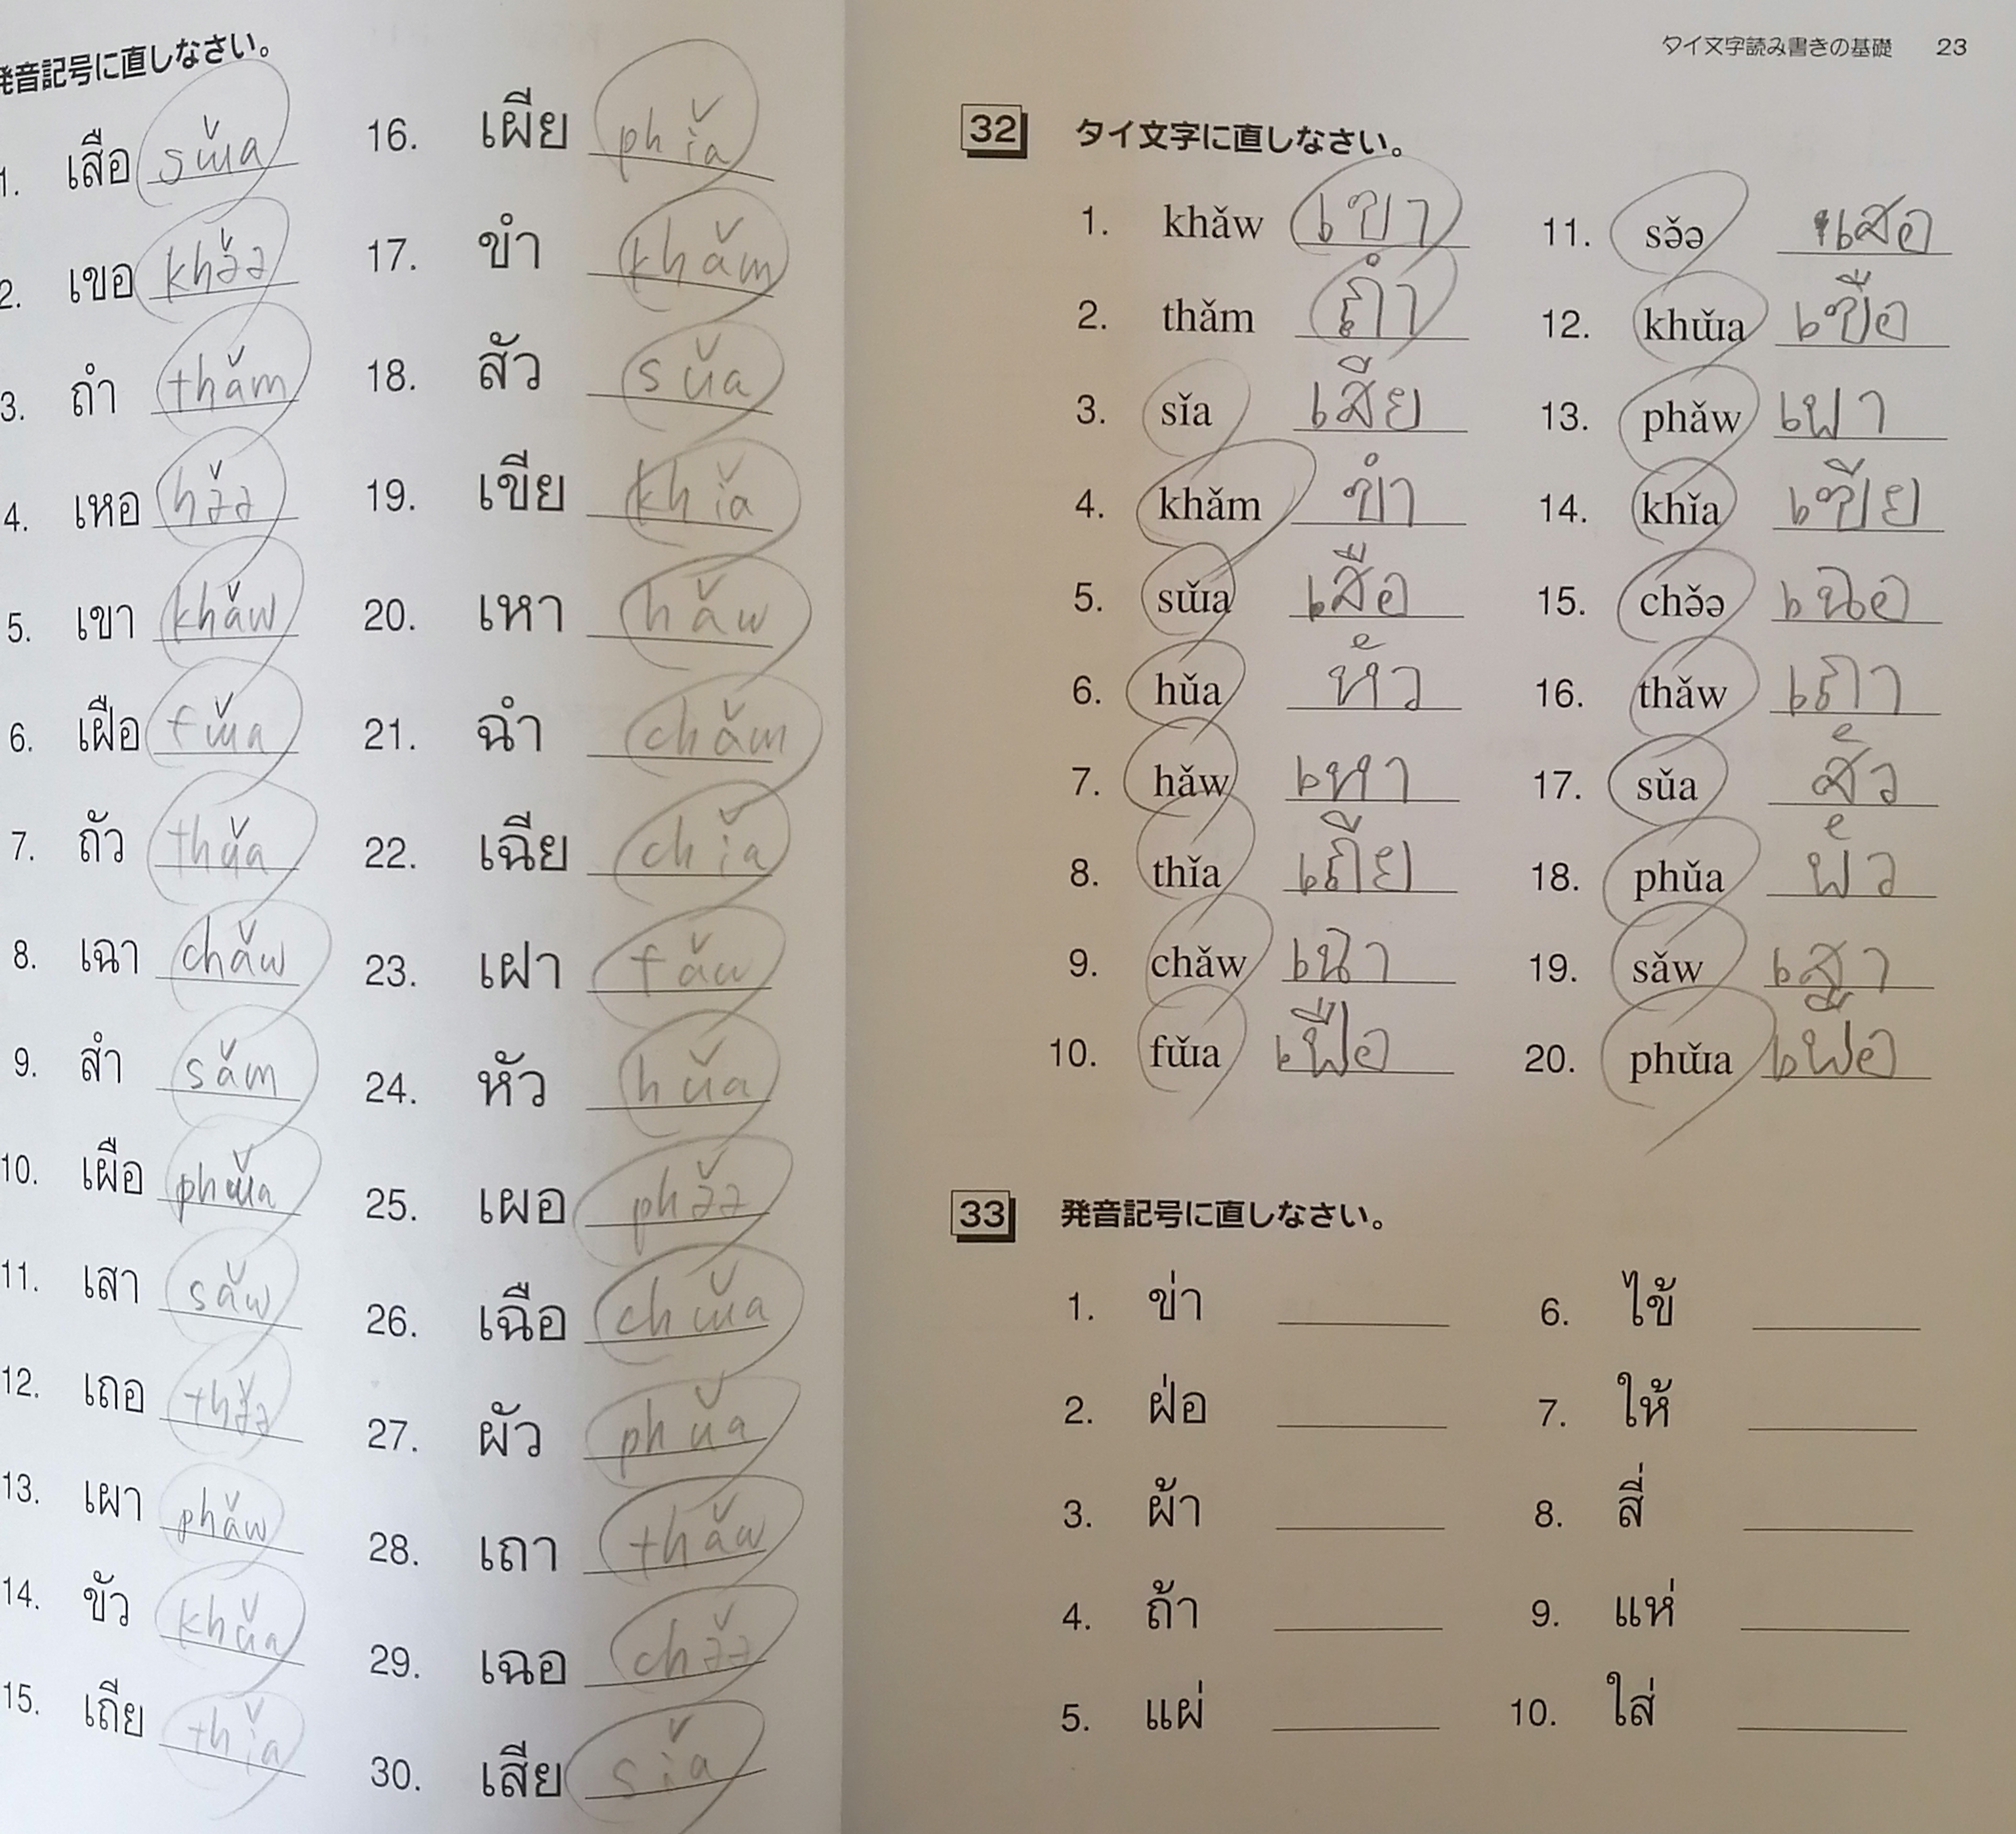 発音記号に直しなさい。
1. เสือ sɯ̌a
2. เขอ khə̌ə
3. ถำ thǎm
4. เหอ hə̌ə
5. เขา khǎw
6. เฝือ fɯ̌a
7. ถัว thǔa
8. เฉา chǎw
9. สำ sǎm
10. เผือ phɯ̌a
11. เสา sǎw
12. เถอ thə̌ə
13. เผา phǎw
14. ขัว khǔa
15. เถีย thǐa
16. เผีย phǐa
17. ขำ khǎm
18. สัว sǔa
19. เขีย khǐa
20. เหา hǎw
21. ฉำ chǎm
22. เฉีย chǐa
23. เฝา fǎw
24. หัว hǔa
25. เผอ phə̌ə
26. เฉือ chɯ̌a
27. ผัว phǔa
28. เถา thǎw
29. เฉอ chə̌ə
30. เสีย sǐa
タイ文字読み書きの基礎 23
32 タイ文字に直しなさい。
1. khǎw เขา
2. thǎm ถำ
3. sǐa เสีย
4. khǎm ขำ
5. sɯ̌a เสือ
6. hǔa หัว
7. hǎw เหา
8. thǐa เถีย
9. chǎw เฉา
10. fɯ̌a เฝือ
11. sə̌ə เสอ
12. khɯ̌a เขือ
13. phǎw เผา
14. khǐa เขีย
15. chə̌ə เฉอ
16. thǎw เถา
17. sǔa สัว
18. phǔa ผัว
19. sǎw เสา
20. phɯ̌a เผือ
33 発音記号に直しなさい。
1. ข่า
2. ฝ่อ
3. ผ้า
4. ถ้า
5. แผ่
6. ไข้
7. ให้
8. สี่
9. แห่
10. ใส่